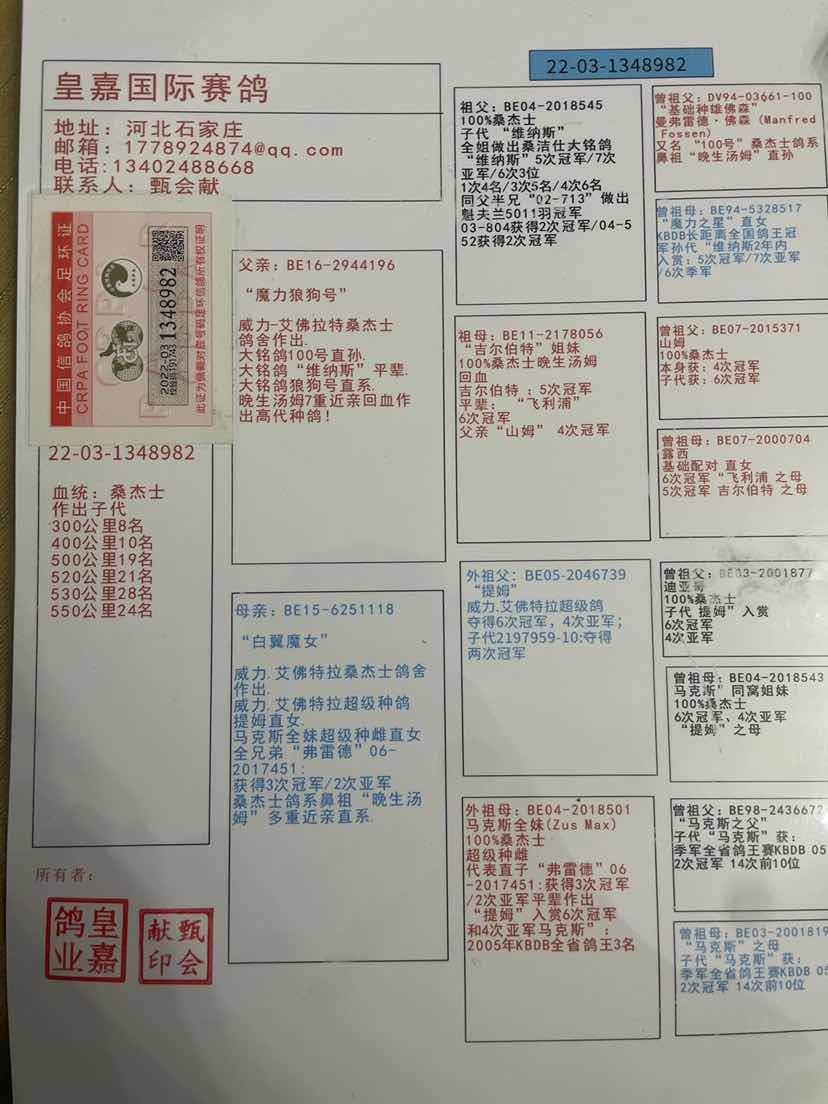 22-03-1348982
皇嘉国际赛鸽
地址：河北石家庄
邮箱：1778924874@qq.com
电话:13402488668
联系人：甄会献
中国信鸽协会足环证
CRPA FOOT RING CARD
2022-03 1348982
此证为佩戴对应号码足环信鸽所有权证明
22-03-1348982
血统：桑杰士
作出子代
300公里8名
400公里10名
500公里19名
520公里21名
530公里28名
550公里24名
所有者：
皇嘉鸽业
甄会献印
父亲：BE16-2944196
“魔力狼狗号”
威力-艾佛拉特桑杰士
鸽舍作出.
大铭鸽100号直孙.
大铭鸽“维纳斯”平辈.
大铭鸽狼狗号直系.
晚生汤姆7重近亲回血作
出高代种鸽！
母亲：BE15-6251118
“白翼魔女”
威力.艾佛特拉桑杰士鸽舍
作出.
威力.艾佛特拉超级种鸽
提姆直女.
马克斯全妹超级种雌直女
全兄弟“弗雷德”06-
2017451:
获得3次冠军/2次亚军
桑杰士鸽系鼻祖“晚生汤
姆”多重近亲直系.
祖父：BE04-2018545
100%桑杰士
子代 “维纳斯”
全姐做出桑洁仕大铭鸽
“维纳斯”5次冠军/7次
亚军/6次3位
1次4名/3次5名/4次6名
同父半兄“02-713”做出
魁夫兰5011羽冠军
03-804获得2次冠军/04-5
52获得2次冠军
祖母：BE11-2178056
“吉尔伯特”姐妹
100%桑杰士晚生汤姆
回血
吉尔伯特 ：5次冠军
平辈： “飞利浦”
6次冠军
父亲“山姆” 4次冠军
外祖父：BE05-2046739
“提姆”
威力.艾佛特拉超级鸽
夺得6次冠军，4次亚军；
子代2197959-10:夺得
两次冠军
外祖母：BE04-2018501
马克斯全妹(Zus Max)
100%桑杰士
超级种雌
代表直子“弗雷德”06
-2017451:获得3次冠军
/2次亚军平辈作出
“提姆”入赏6次冠军
和4次亚军马克斯”：
2005年KBDB全省鸽王3名
曾祖父：DV94-03661-100
“基础种雄佛森”
曼弗雷德·佛森 (Manfred
Fossen)
又名 “100号”桑杰士鸽系
鼻祖“晚生汤姆”直孙
曾祖母：BE94-5328517
“魔力之星”直女
KBDB长距离全国鸽王冠
军孙代“维纳斯2年内
入赏：5次冠军/7次亚军
/6次季军
曾祖父：BE07-2015371
山姆
100%桑杰士
本身获：4次冠军
子代获：6次冠军
曾祖母：BE07-2000704
露西
基础配对 直女
6次冠军“飞利浦 之母
5次冠军 吉尔伯特 之母
曾祖父：BE03-2001877
迪亚哥
100%桑杰士
子代 提姆”入赏
6次冠军
4次亚军
曾祖母：BE04-2018543
马克斯”同窝姐妹
100%桑杰士
6次冠军、4次亚军
“提姆”之母
曾祖父：BE98-2436672
“马克斯之父”
子代“马克斯”获：
季军全省鸽王赛KBDB 05
2次冠军 14次前10位
曾祖母：BE03-2001819
“马克斯”之母
子代“马克斯”获：
季军全省鸽王赛KBDB 05
2次冠军 14次前10位